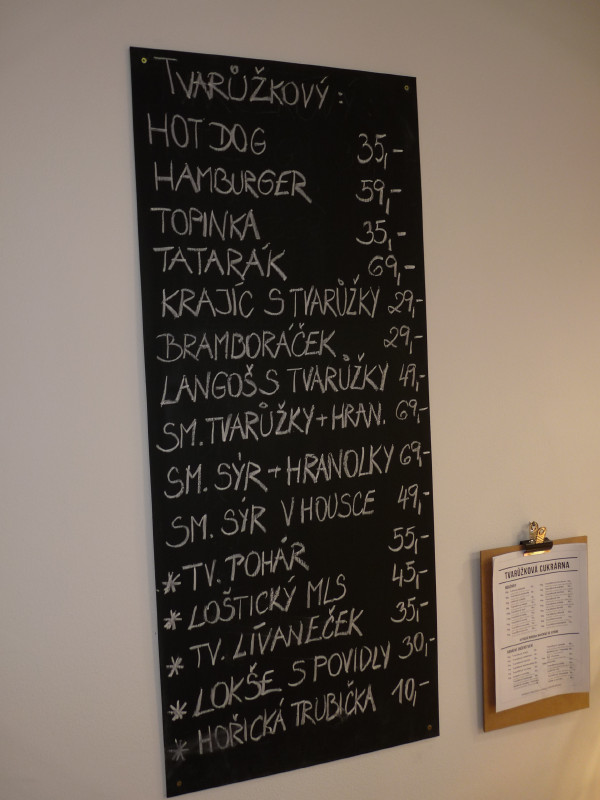 TVARŮŽKOVÝ:
HOTDOG 35,-
HAMBURGER 59,-
TOPINKA 35,-
TATARÁK 69,-
KRAJÍC S TVARŮŽKY 29,-
BRAMBORÁČEK 29,-
LANGOŠ S TVARŮŽKY 49,-
SM. TVARŮŽKY + HRAN. 69,-
SM. SÝR + HRANOLKY 69,-
SM. SÝR V HOUSCE 49,-
* TV. POHÁR 55,-
* LOŠTICKÝ MLS 45,-
* TV. LÍVANEČEK 35,-
* LOKŠE S POVIDLY 30,-
* HOŘICKÁ TRUBIČKA 10,-
TVARŮŽKOVÁ CUKRÁRNA